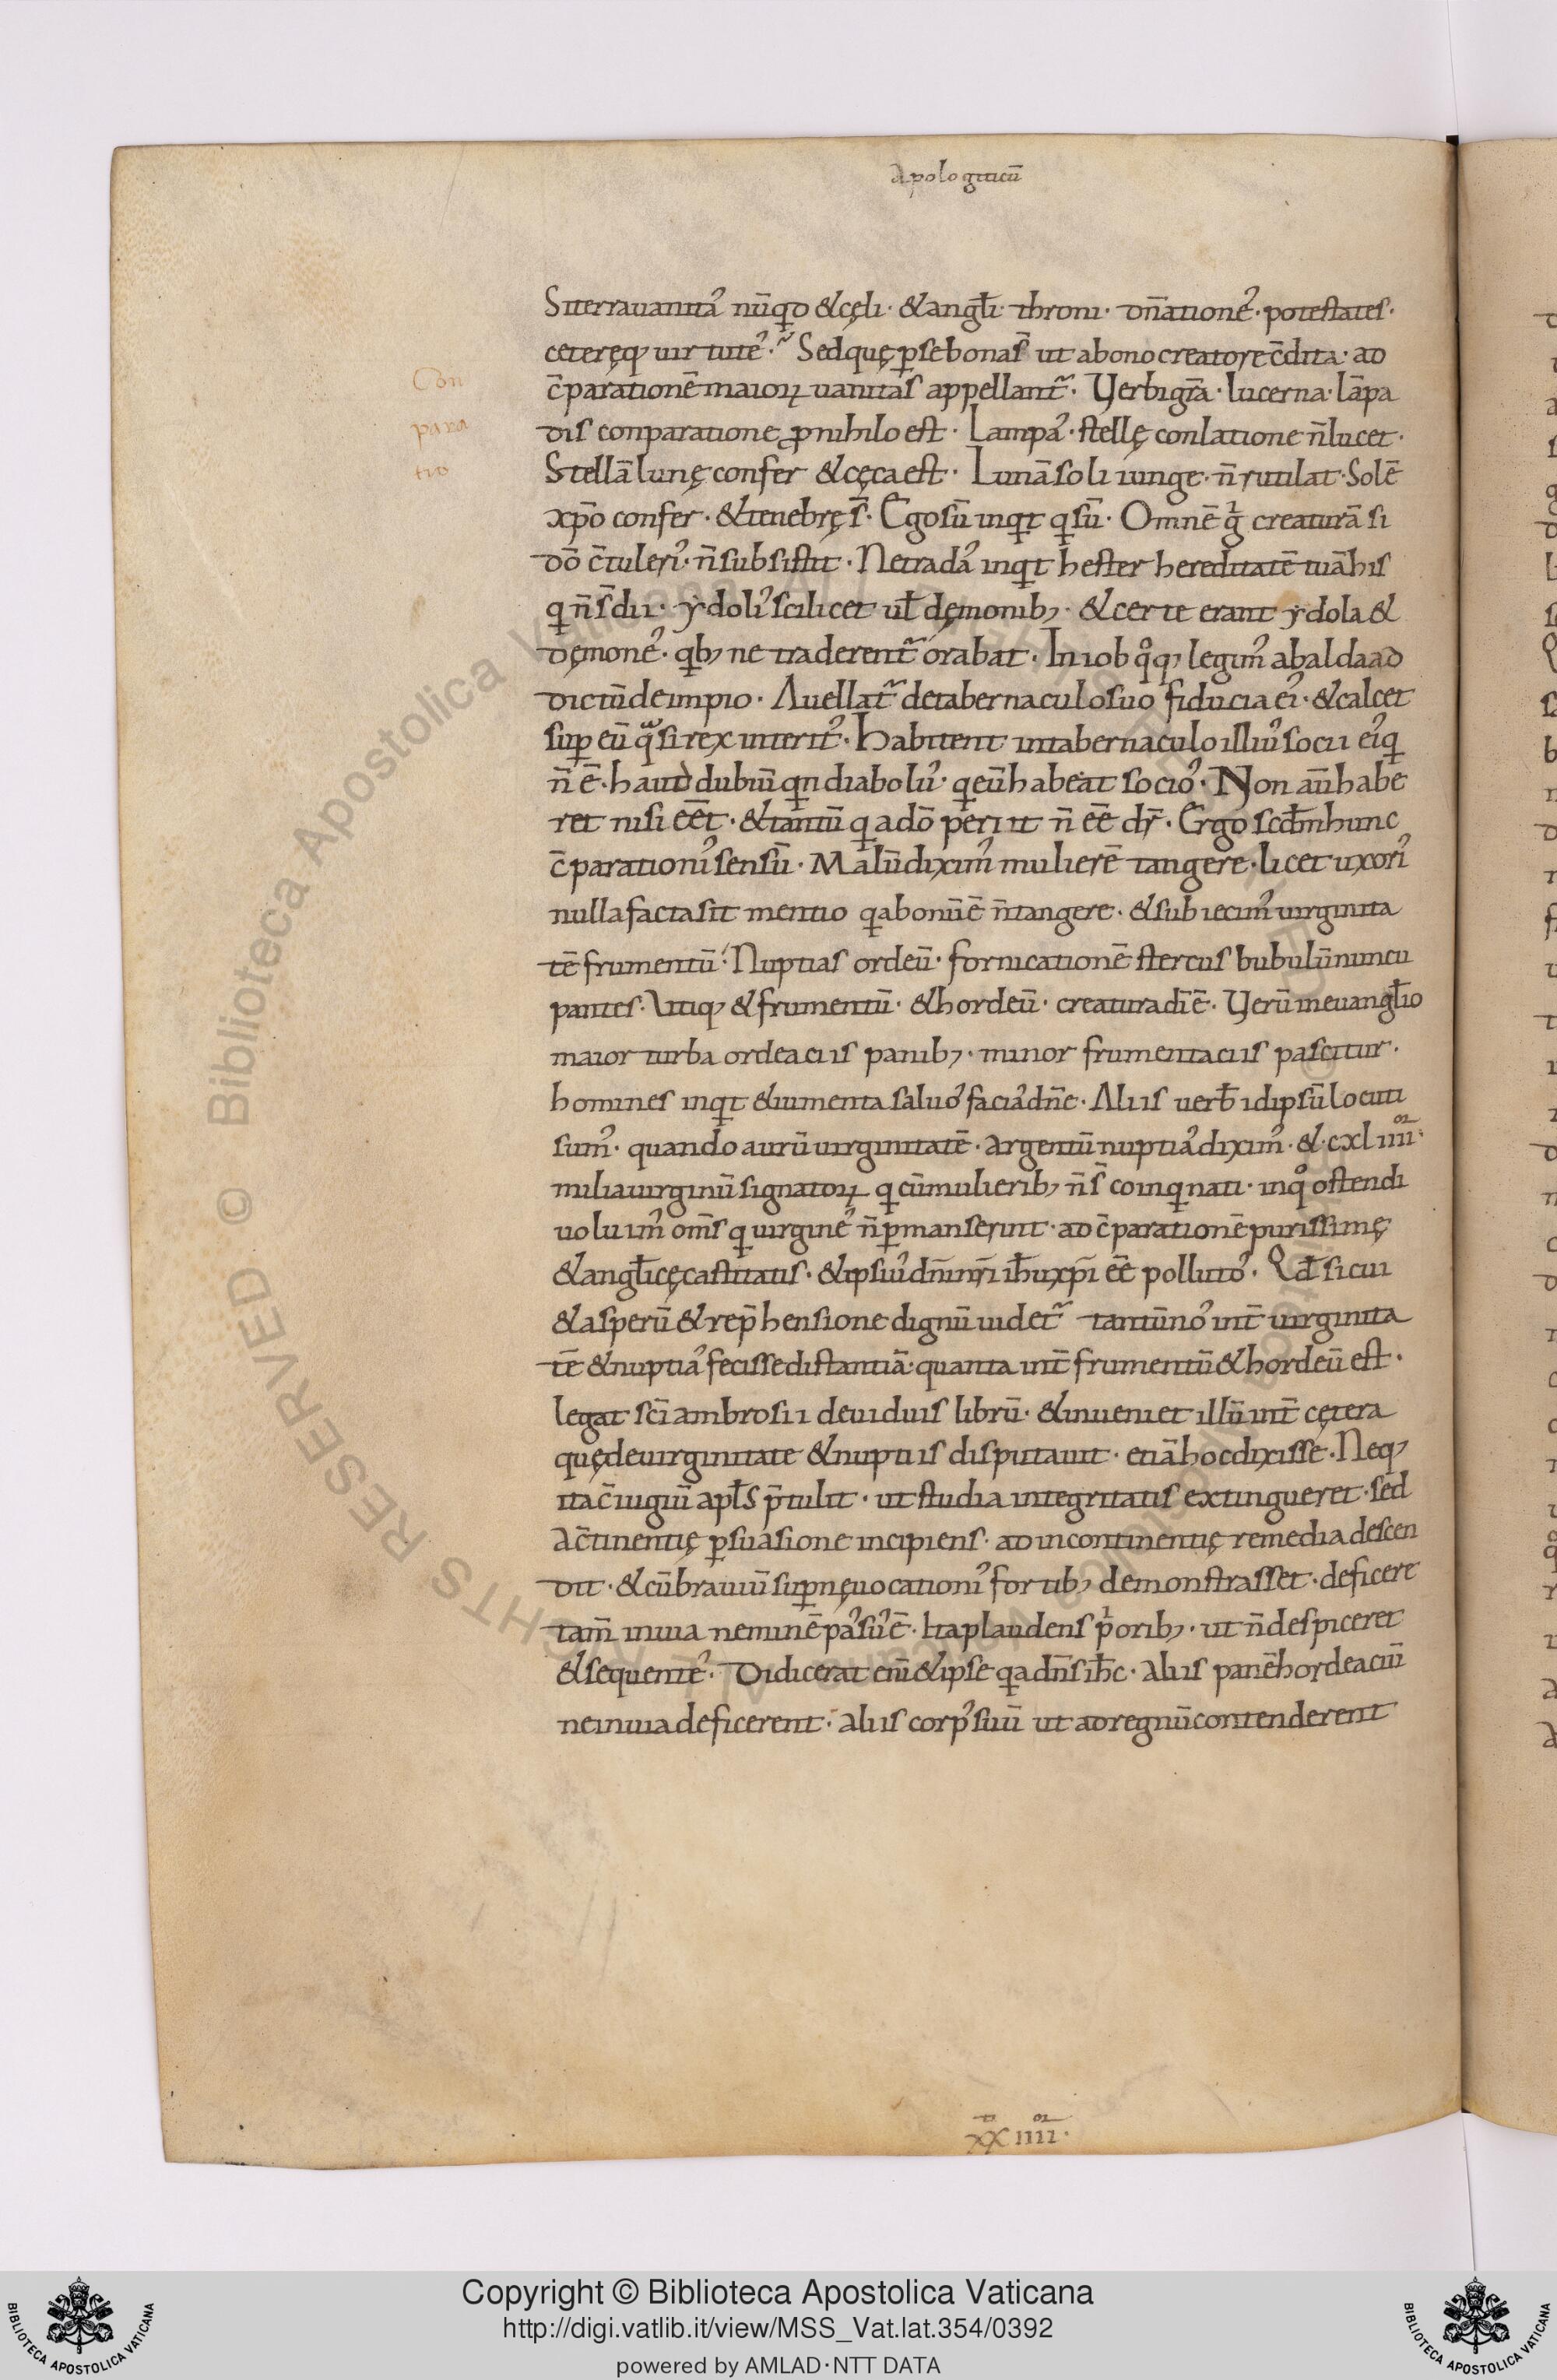 Apologiticū
Siterrauanitaˀ nūqđ &cęli · &angl̄i · throni · dn̄ationeˀ · potestates ·
cetereęq; uirtuteˀ · Sedquę ꝑsebonas̄ ut abonocreatore c̄dita · ad
Con
c̄parationē maioꝝ uanitas appellant᷑ · Verbigr̄a · lucerna · lāpa
para
dis conparatione ꝓnihilo est · Lampaˀ · stellę conlatione n̄lucet ·
tio
Stellā lunę confer &cęcaest · Lunāsoli iunge · n̄rutilat · Solē
xp̄o confer · &tenebrę s̄ · Egosū inqͥt qͥsū · Omnē gͥ creaturā si
dō c̄tuleriˀ · n̄subsistit · Netradaˀ inqͥt hester hereditatē tuā his
qͥ n̄ s̄ dii · ydoliˀ scilicet ul̄ dęmonib; · &certe erant ydola &
dęmoneˀ · qͥb; ne traderent᷑ orabat · In iob qͦq; legimˀ abaldaad
dictūdeimpio · Auellat᷑ detabernaculosuo fiducia eiˀ · &calcet
suꝑ eū qͣsi rex interitˀ · Habitent intabernaculo illiuˀ socii eiˀqͥ
n̄ ē · haud dubiū qͥn diaboluˀ · qͥeūhabeat socioˀ · Non aūhabe
ret nisi eēt · &tantū qͥ adō periit n̄ eē dr̄ · Ergo scđmhunc
c̄parationiˀ sensū · Malūdiximˀ mulierē tangere · licet uxoriˀ
nullafactasit mentio qͥabonūē n̄tangere · &subiecimˀ uirginita
tē frumentū · Nuptias ordeū · fornicationē stercus bubulū nuncu
pantes · Vtiq; &frumentū · &hordeū · creaturadīē · Verū ineuangl̄io
maior turba ordeaciis panib; · minor frumentaciis pascitur ·
homines inqͥt &iumenta saluoˀ faciaˀ dn̄e · Aliis uerb̄ idipsū locuti
sumˀ · quando aurū uirginitatē · argentū nuptiaˀ diximˀ · &·cxliiii or ·
miliauirginū signatoꝝ qͥ cūmulierib; n̄ s̄ coinqͥnati · inqͦ ostendi
uoluimˀ om̄s qͥ uirgineˀ n̄ꝑmanserint · ad c̄parationē purissimę
&angl̄icęcastitatis · &ipsiuˀ dn̄inr̄i ih̄uxp̄i eē pollutoˀ · Qđ sicui
&asperū &rep̄hensione dignū uidet᷑ tantūnoˀ int̄ uirginita
tē &nuptiaˀ fecissedistantiā · quanta int̄ frumentū &hordeū est ·
legat sc̄i ambrosii deuiduis librū · &inueniet illū int̄ cętera
quędeuirginitate &nuptiis disputauit · etiāhocdixisse · Neq;
itac̄iugiū apl̄s p̄tulit · ut studia integritatis extingueret · sed
ac̄tinentię ꝑsuasione incipiens · ad incontinentię remedia descen
dit · &cūbrauiū suꝑnęuocationiˀ fortib; demonstrasset · deficere
tam̄ inuia neminē paˀsuˀ ē · Itaplaudens pͥorib; · ut n̄despiceret
&sequenteˀ · Didicerat enī &ipse qͥadn̄s ih̄c · aliis panēhordeaciū
neinuiadeficerent · aliis corpˀsuū ut adregnūcontenderent
XXIIII or ·
Copyright © Biblioteca Apostolica Vaticana
http://digi.vatlib.it/view/MSS_Vat.lat.354/0392
powered by AMLAD·NTT DATA